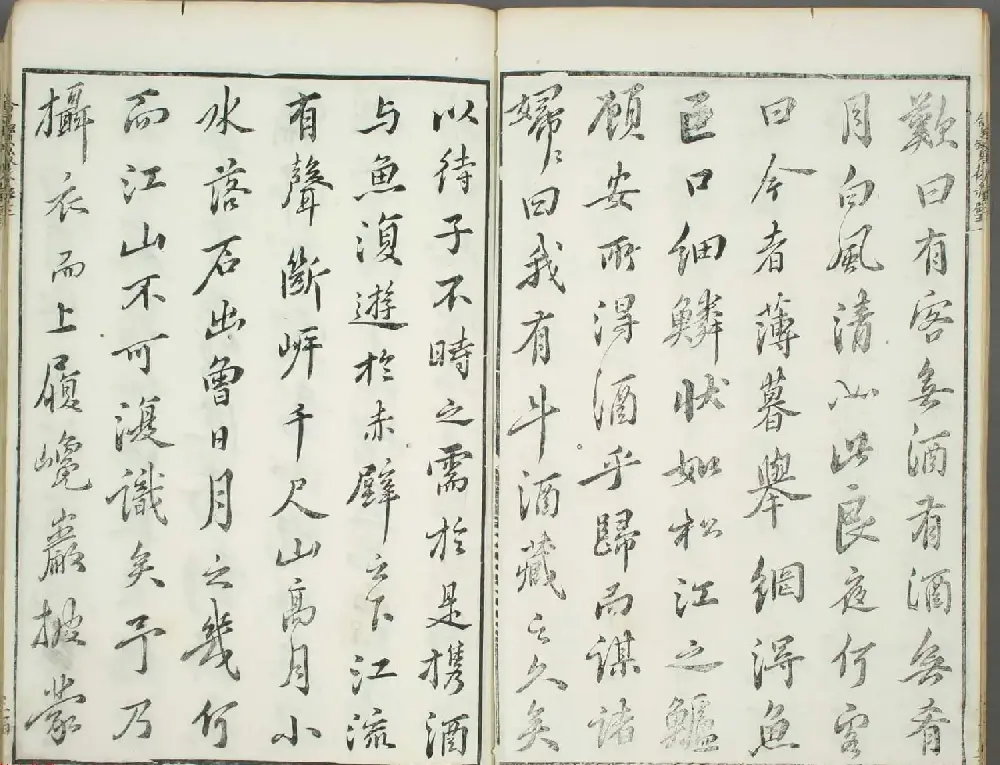 歎曰有客無酒有酒無肴
月白風清如此良夜何客
曰今者薄暮舉網得魚
巨口細鱗狀如松江之鱸
顧安所得酒乎歸而謀諸
婦〻曰我有斗酒藏之久矣
以待子不時之需於是携酒
与魚復遊於赤壁之下江流
有聲斷岸千尺山高月小
水落石出曾日月之幾何
而江山不可復識矣予乃
攝衣而上履巉巖披蒙